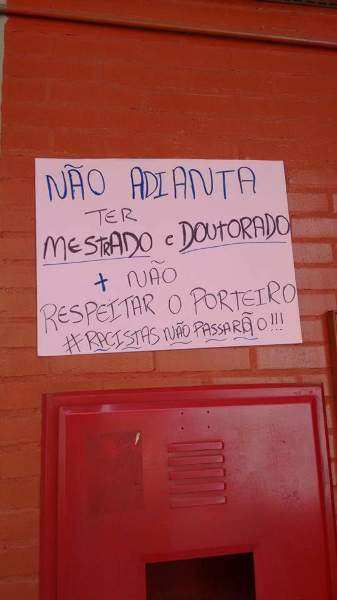 NÃO ADIANTA
TER
MESTRADO e DOUTORADO
+ NÃO
RESPEITAR O PORTEIRO
#RACISTAS NÃO PASSARÃO!!!